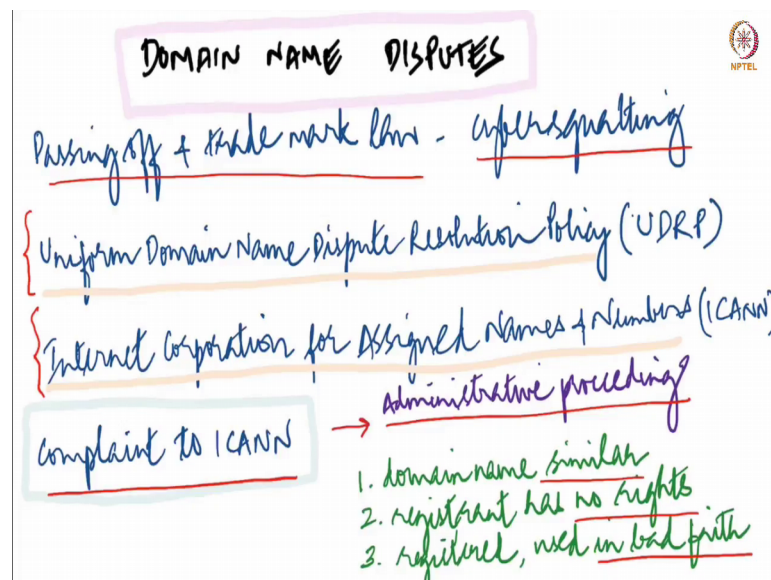 DOMAIN NAME DISPUTES
NPTEL
Passing off & trade mark law - cybersquatting
Uniform Domain Name Dispute Resolution Policy (UDRP)
Internet Corporation for Assigned Names & Numbers (ICANN)
Complaint to ICANN → Administrative proceeding
1. domain name similar
2. registrant has no rights
3. registered, used in bad faith